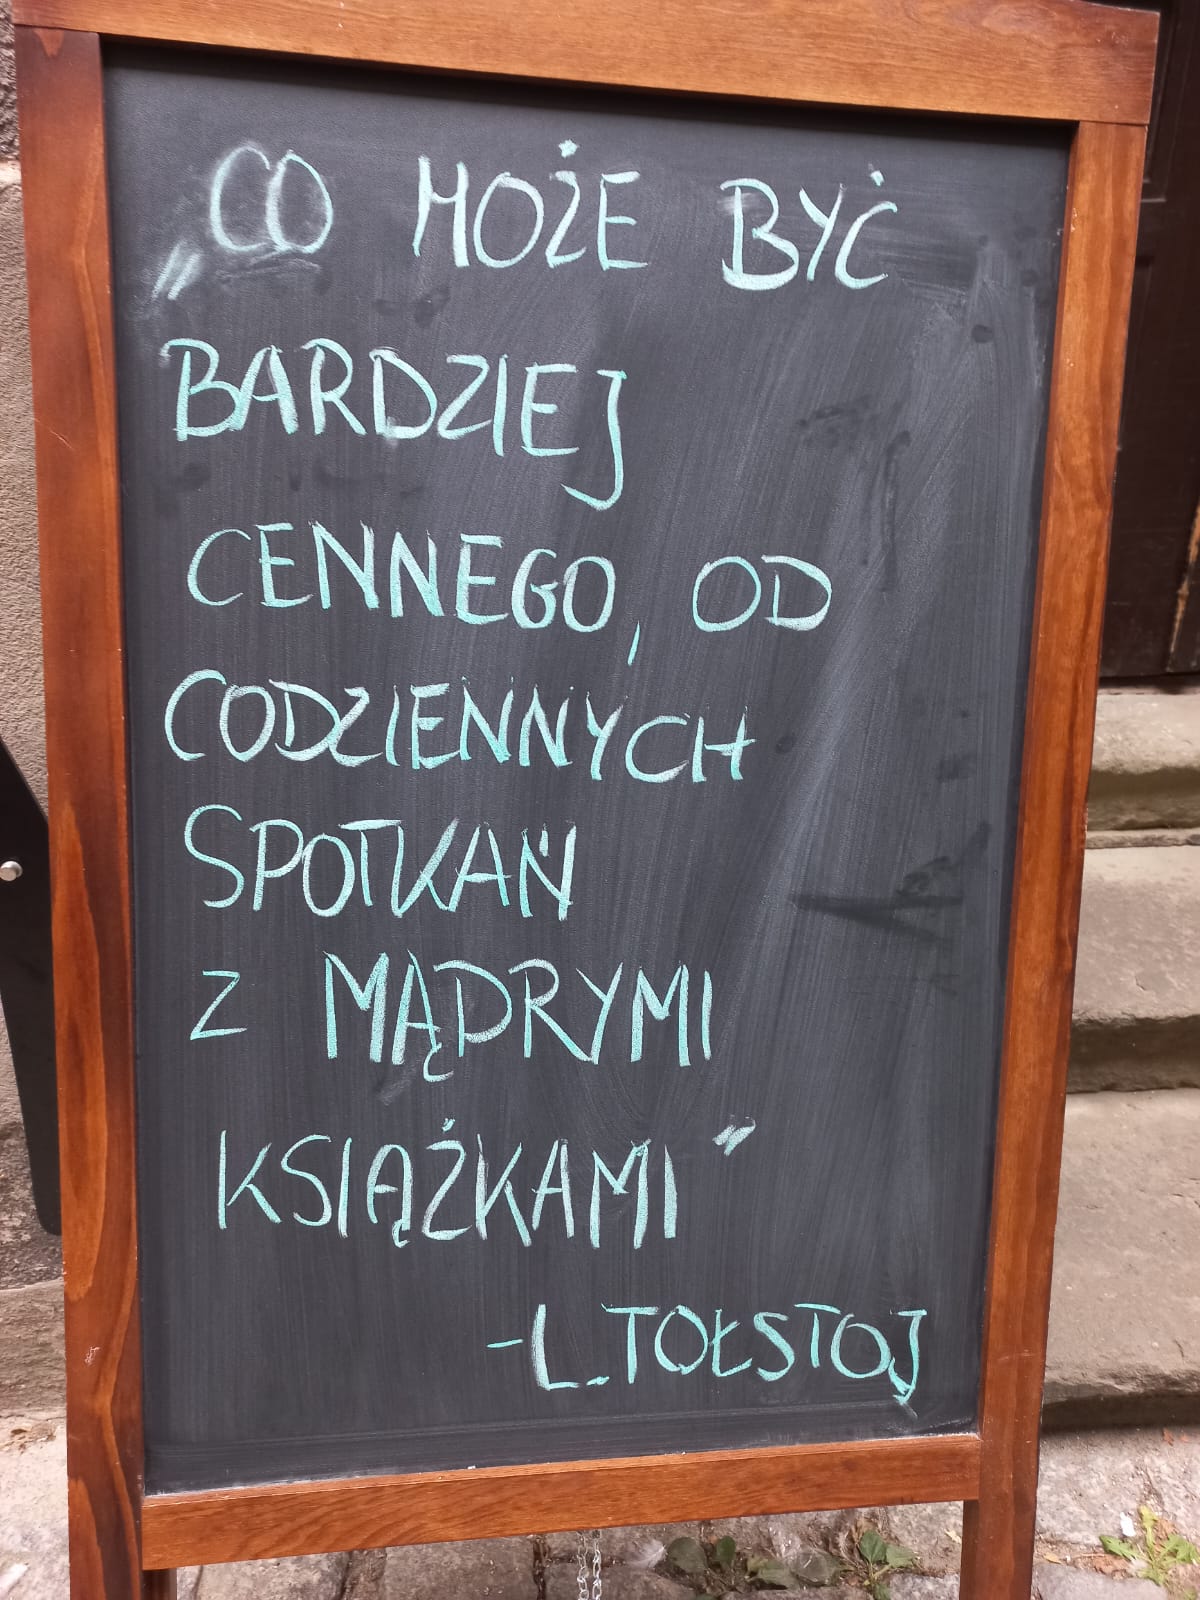 „CO MOŻE BYĆ
BARDZIEJ
CENNEGO, OD
CODZIENNYCH
SPOTKAŃ
Z MĄDRYMI
KSIĄŻKAMI”
-L.TOŁSTOJ